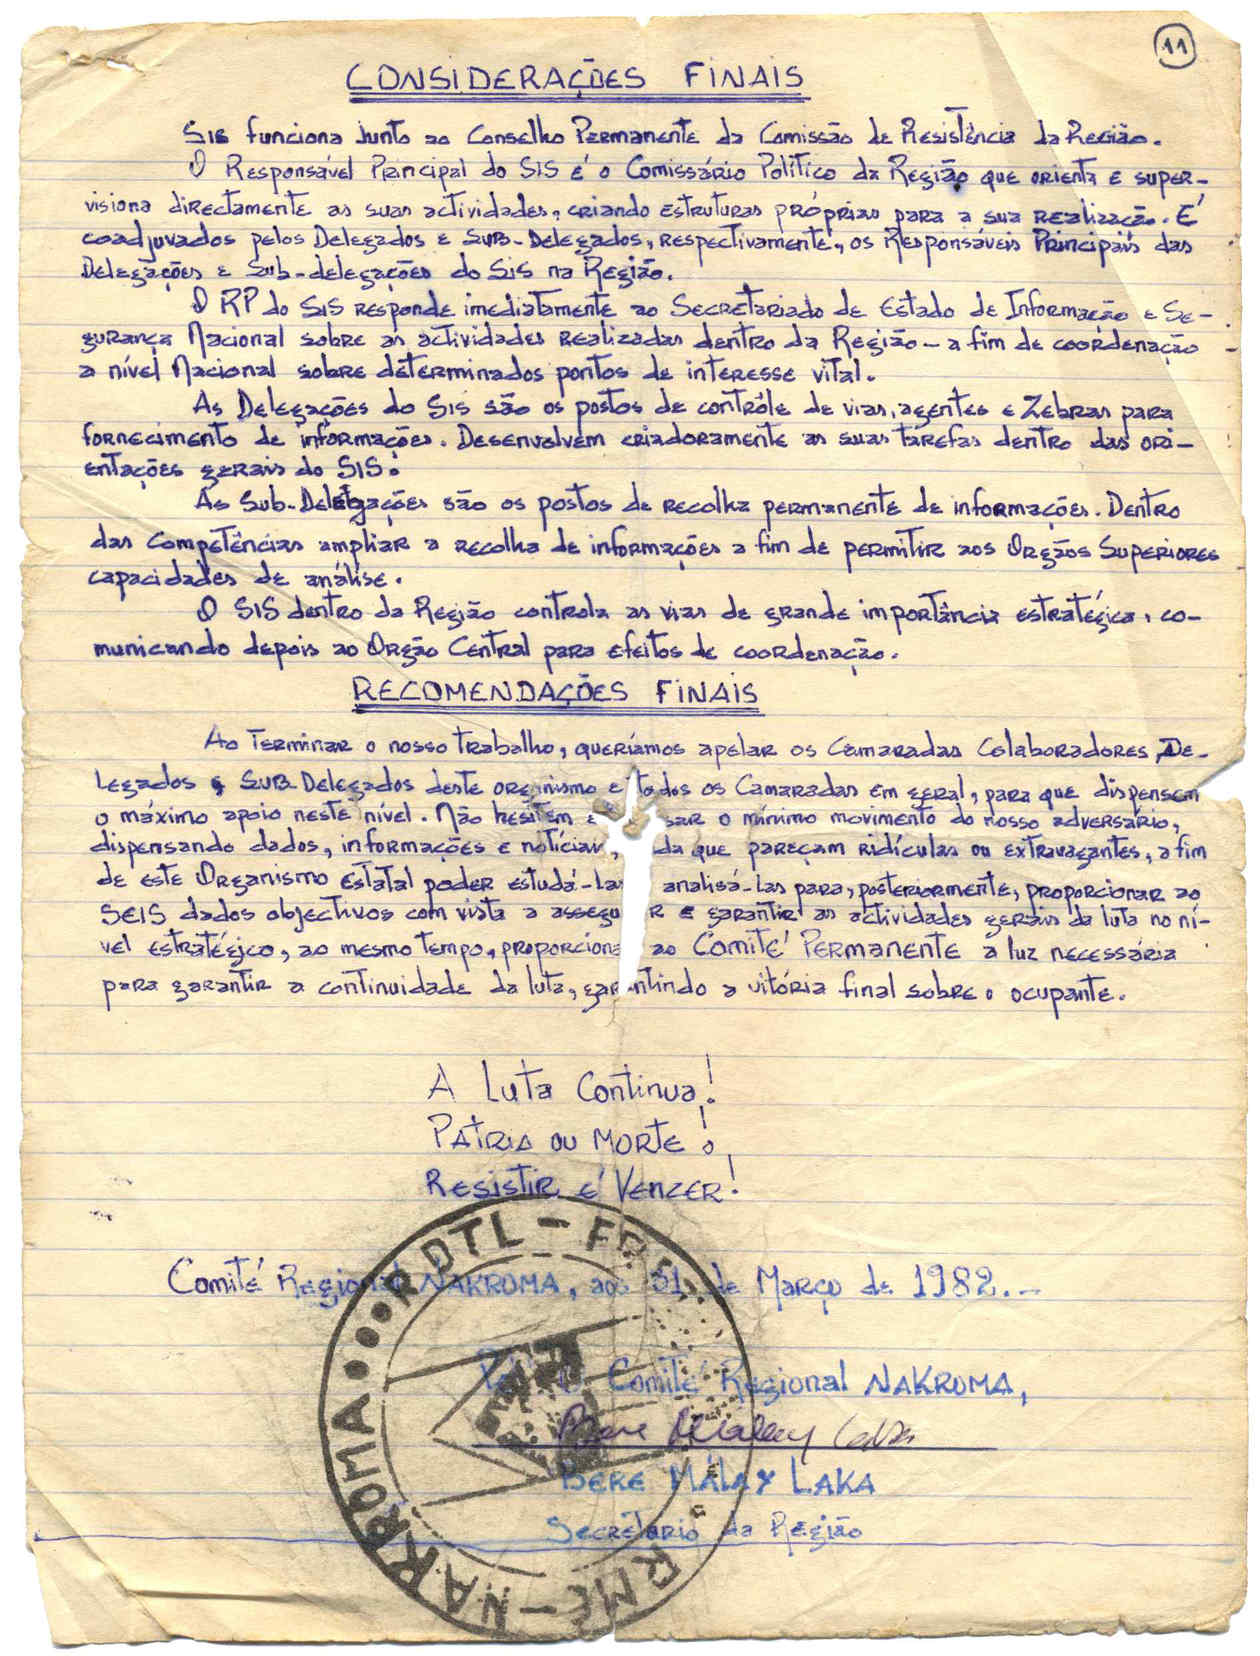 11
CONSIDERAÇÕES FINAIS
SIS funciona junto ao Conselho Permanente da Comissão de Resistência da Região.
O Responsável Principal do SIS é o Comissário Político da Região que orienta e super-
visiona directamente as suas actividades, criando estruturas próprias para a sua realização. É
coadjuvados pelos Delegados e Sub-Delegados, respectivamente, os Responsáveis Principais das
Delegações e Sub-delegações do SIS na Região.
O RP do SIS responde imediatamente ao Secretariado de Estado de Informação e Se-
gurança Nacional sobre as actividades realizadas dentro da Região - a fim de coordenação
a nível Nacional sobre determinados pontos de interesse vital.
As Delegações do SIS são os postos de contrôle de vias, agentes e Zebras para
fornecimento de informações. Desenvolvem criadoramente as suas tarefas dentro das ori-
entações gerais do SIS.
As Sub-Delegações são os postos de recolha permanente de informações. Dentro
das Competências ampliar a recolha de informações a fim de permitir aos Orgãos Superiores
capacidades de análise.
O SIS dentro da Região controla as vias de grande importância estratégica, co-
municando depois ao Orgão Central para efeitos de coordenação.
RECOMENDAÇÕES FINAIS
Ao Terminar o nosso trabalho, queríamos apelar os Camaradas Colaboradores, De-
legados e Sub-Delegados deste organismo e todos os Camaradas em geral, para que dispensem
o máximo apoio neste nível. Não hesitem sar o mínimo movimento do nosso adversário,
dispensando dados, informações e notícias, da que pareçam ridículas ou extravagantes, a fim
de este Organismo Estatal poder estudá-las analisá-las para, posteriormente, proporcionar ao
SEIS dados objectivos com vista a assegu r e garantir as actividades gerais da luta no ní-
vel estratégico, ao mesmo tempo, proporciona ao Comité Permanente a luz necessária
para garantir a continuidade da luta, garantindo a vitória final sobre o ocupante.
A Luta Continua!
Pátria ou Morte!
Resistir é Vencer!
Comité Regional NAKROMA, aos 31 de Março de 1982.-
Pel' O Comité Regional NAKROMA,
Bere Malay Laka
BERE MÁLAY LAKA
Secretario da Região
RDTL - FRE
RME - NAKROMA